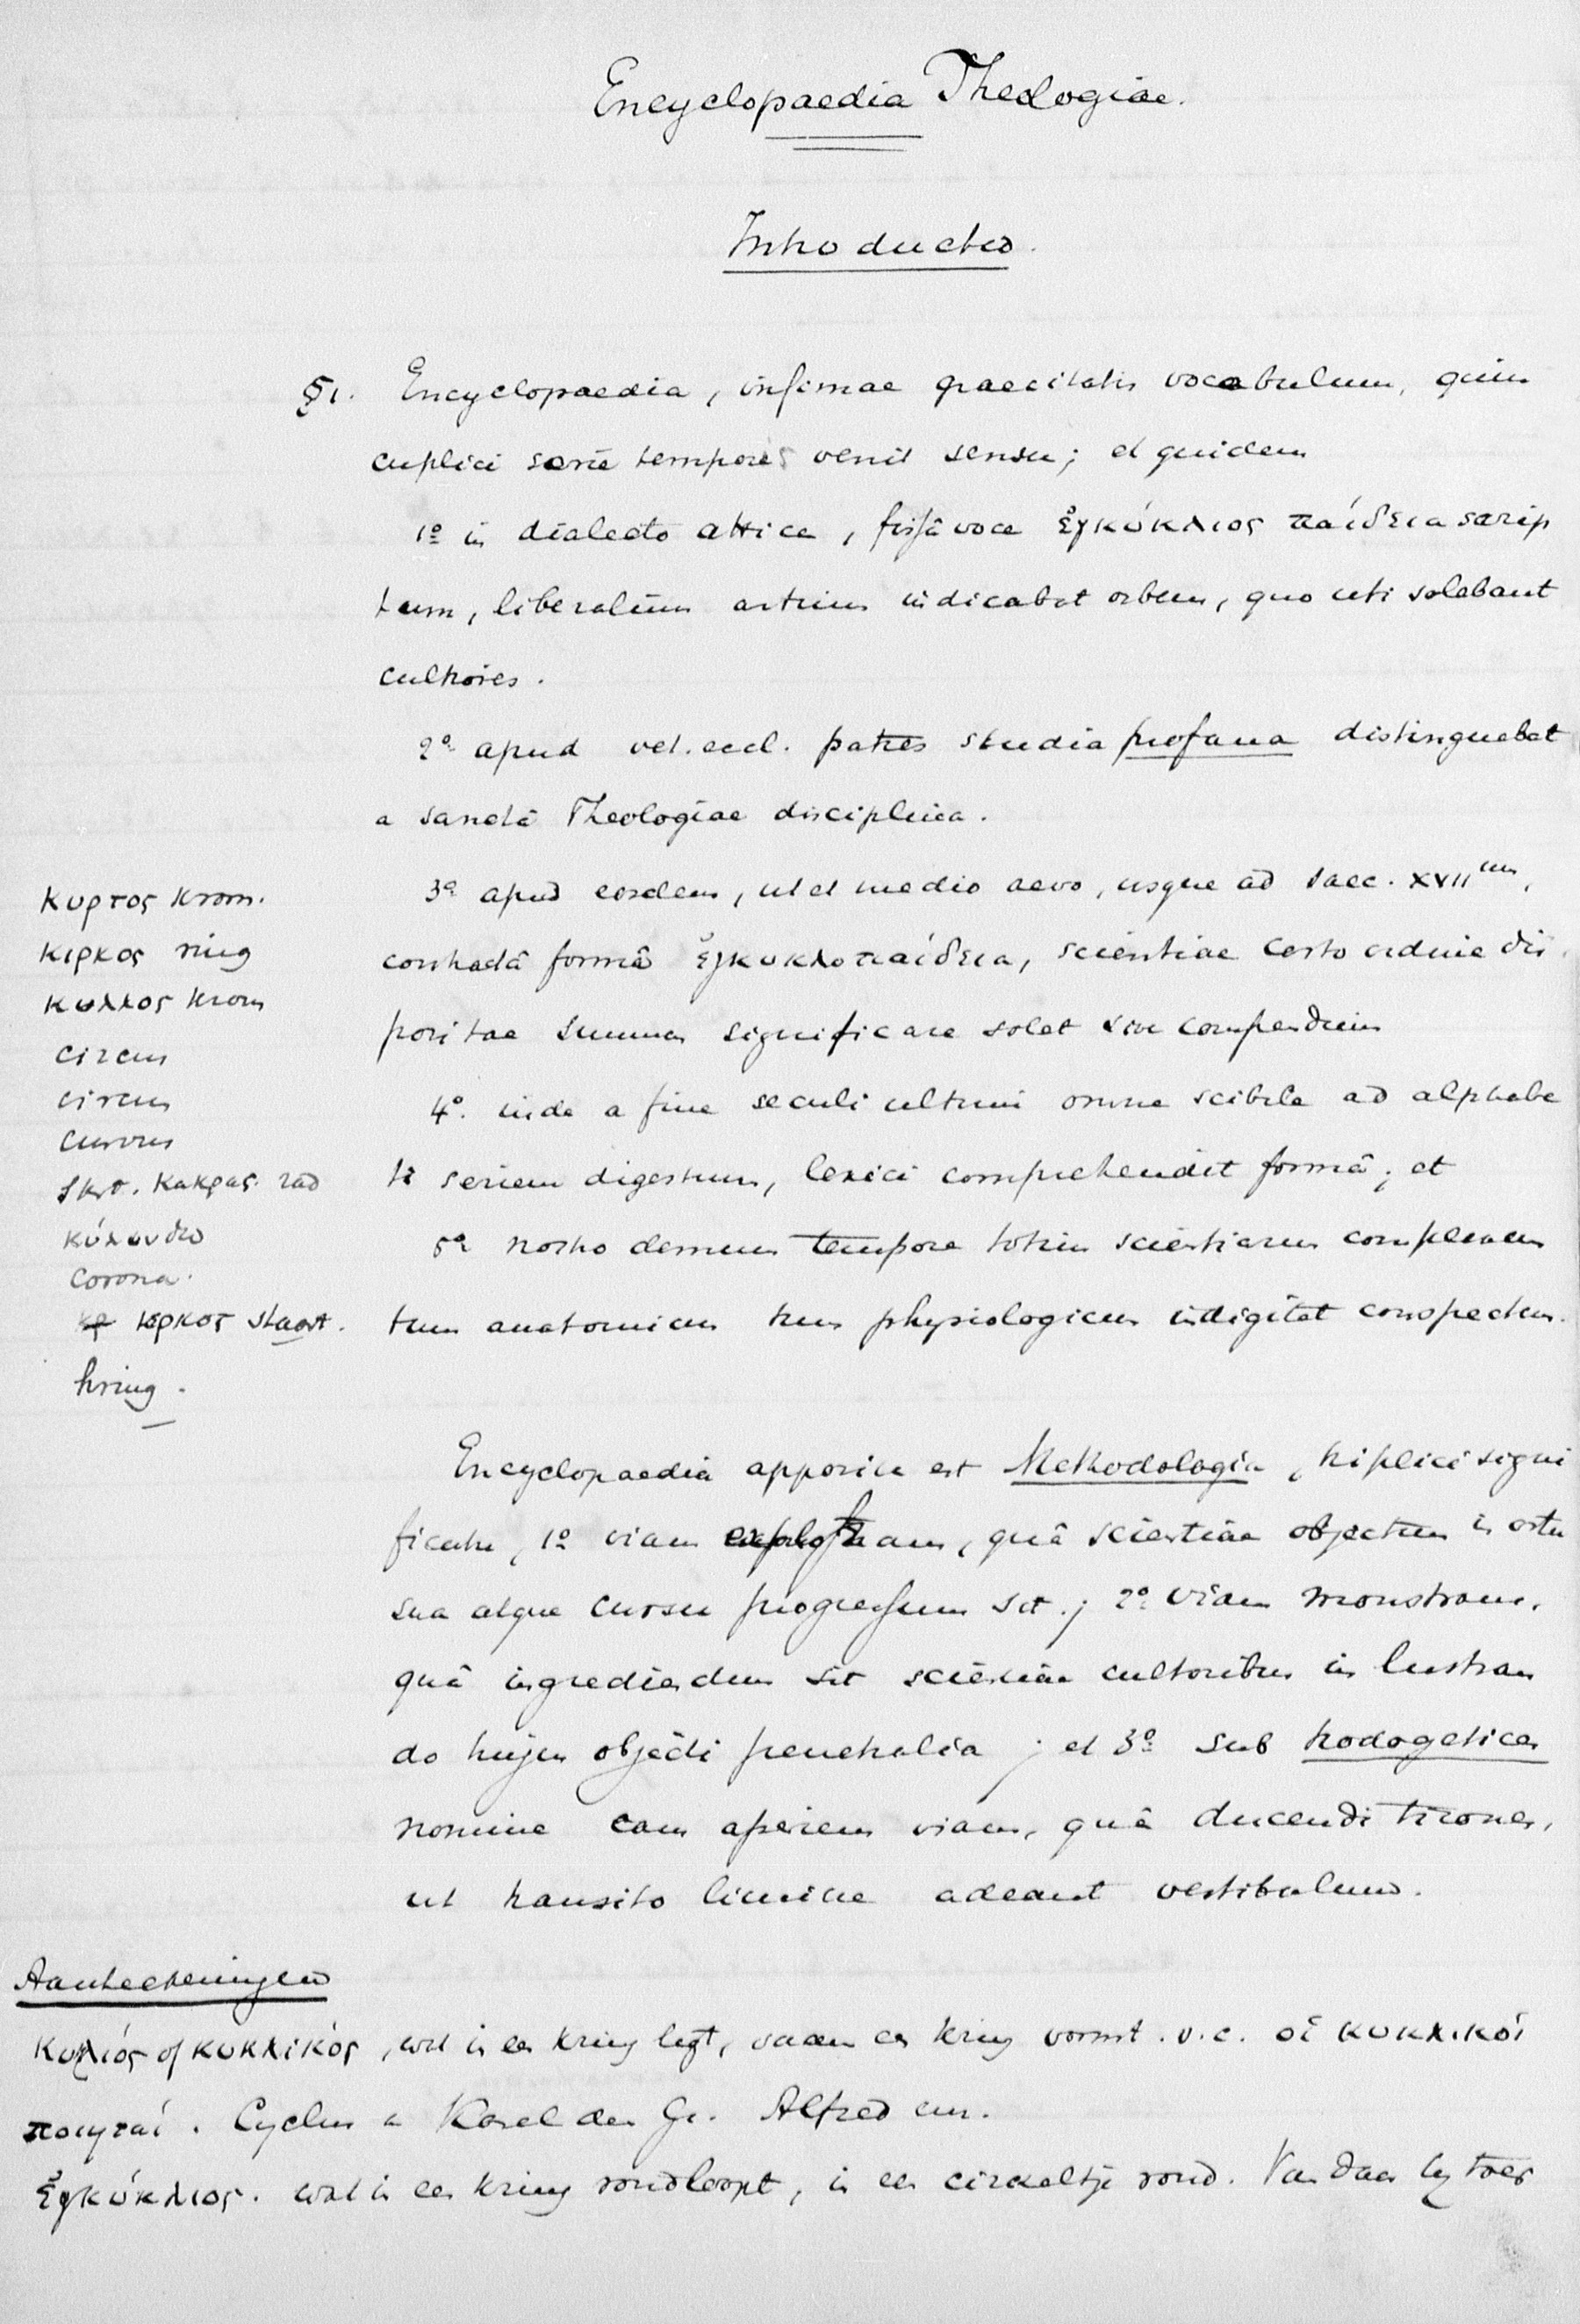 Encyclopaedia Theologiae.
Introductio.
§1. Encyclopaedia, infimae graecitatis vocabulum, quin
cuplici serie temporis venit sensu; et quidem
1º in dialecto attica, fissâ voce ἐγκύκλιος παίδεια scrip
tum, liberalium artium indicabat orbem, quo uti solebant
cultiores.
2º apud vet. eccl. patres studia profana distinguebat
a sanctâ Theologiae disciplina.
3º apud eosdem, ut et medio aevo, usque ad saec. XVIIum,
contractâ formâ ἐγκυκλοπαίδεια, scientiae certo ordine dis
positae summam significare solet sive compendium
4º. inde a fine seculi ultimi omne scibile ad alphabe
ti seriem digestum, lexici comprehendit formâ; et
5º nostro demum tempore totius scientiarum complexus
tum anatomicum tum physiologicum indigitat conspectum.
κυρτος krom.
κιρκος ring
κυλλος krom
circum
circus
curvus
Skrt. Kakras. rad
κύλινδω
corona.
κρ κιρκος staart.
hring.
Encyclopaedia apposita est Methodologia, triplici signi
ficatu, 1º viam explorans, quâ scientiae objectum in ortu
suo atque cursu progressum sit; 2º viam monstrans,
quâ ingrediendum sit scientiae cultoribus in lustran
do hujus objecti penetralia; et 3º sub hodogetices
nomine eam aperiens viam, quâ ducendi tirones,
ut transito limine adeant vestibulum.
Aanteekeningen
κυκλιός of κυκλικός, wat in een kring ligt, samen een kring vormt. v.c. οἱ κυκλικοί
ποιηταί. Cyclus v Karel den Gr. Alfred enz.
ἐγκύκλιος. wat in een kring rondloopt, in een cirkeltje rond. Van daar bij toes